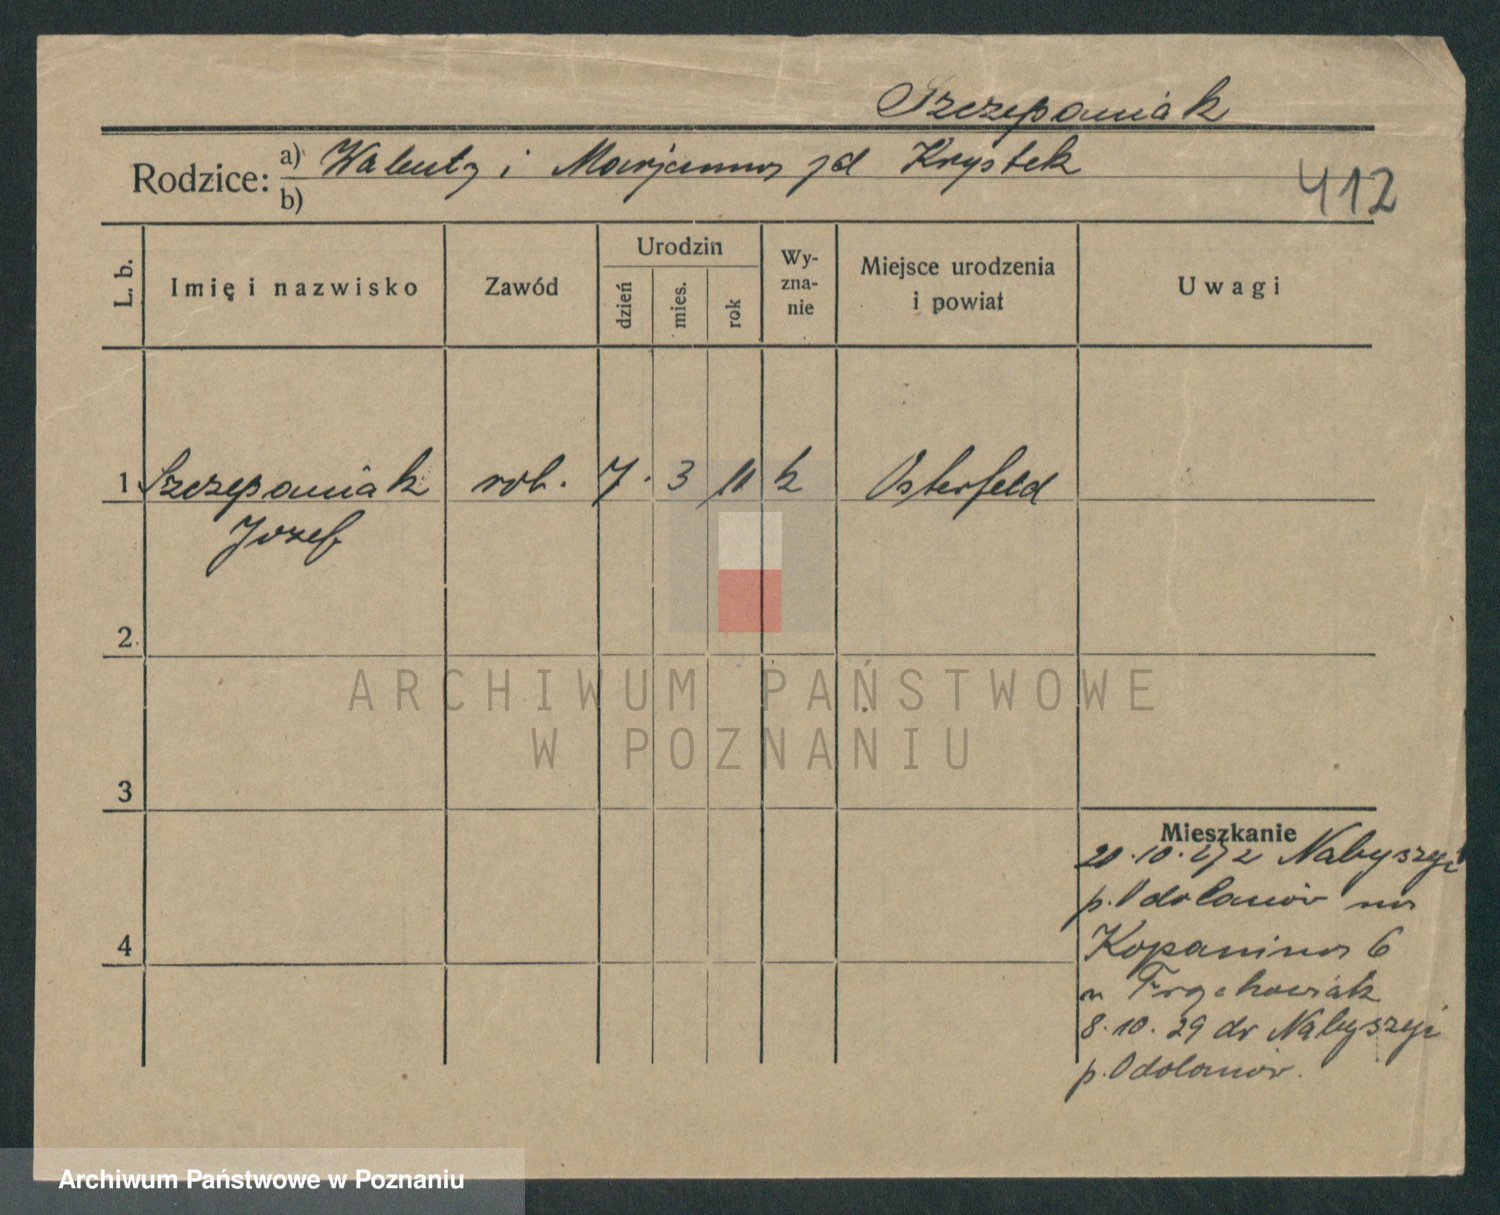 Szczepaniak
Rodzice: a) Walenty i Marjanna zd Krystek
b)
412
L. b.
Imię i nazwisko
Zawód
Urodzin
dzień
mies.
rok
Wy-
zna-
nie
Miejsce urodzenia
i powiat
Uwagi
1 Szczepaniak rob. 7. 3 11 k Osterfeld
Józef
2.
3
4
Mieszkanie
20.10.27 z Nabyszyc
p. Odolanów na
Kopanina 6
8.10.29 do Nabyszyc
p. Odolanów.
ARCHIWUM PAŃSTWOWE
W POZNANIU
Archiwum Państwowe w Poznaniu